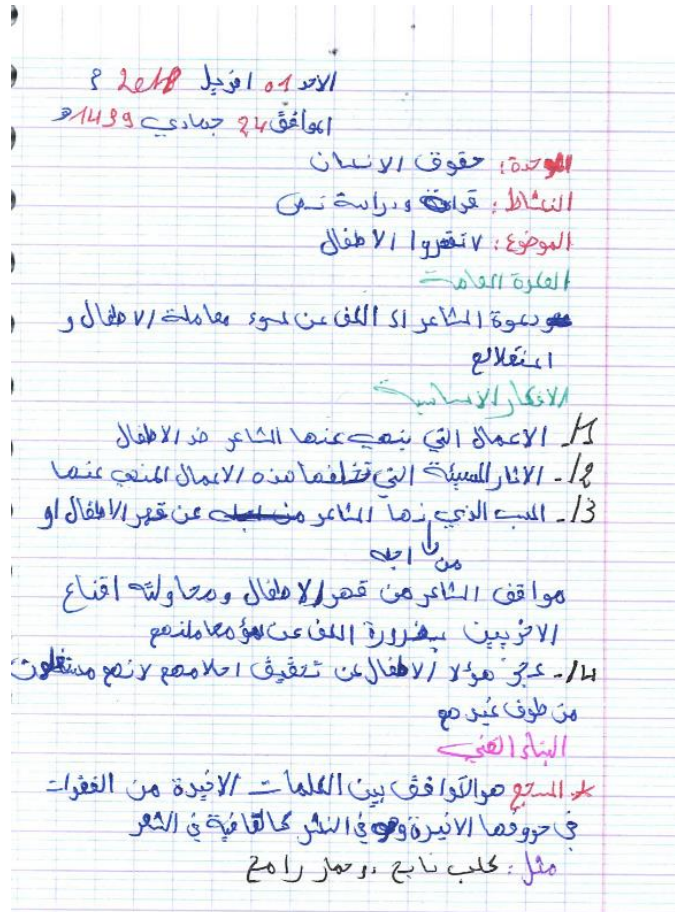 الاحد 01 افريل 2018 م
الموافق 24 جمادي 1439 هـ
الوحدة: حقوق الانسان
النشاط: قراءة ودراسة نص
الموضوع: لا تقهروا الاطفال
الفكرة العامة
دعوة الشاعر الى الكف عن سوء معاملة الاطفال و
استغلالهم
الافكار الاساسية
1/- الاعمال التي ينهى عنها الشاعر ضد الاطفال
2/- الاثار السيئة التي تخلفها هذه الاعمال المنهى عنها
3/- السبب الذي نها الشاعر عن قهر الاطفال او
من اجله
مواقف الشاعر من قهر الاطفال ومحاولته اقناع
الاخريين بضرورة الكف عن سوء معاملتهم
4/- عجز هؤلا الاطفال عن تحقيق احلامهم لانهم مستغلون
من طرف غيرهم
البناء الفني
* السجع هو التوافق بين الكلمات الاخيرة من الفقرات
في حروفها الاخيرة وهو في النثر كالقافية في الشعر
مثل: كلب نابح، وحمار رامح